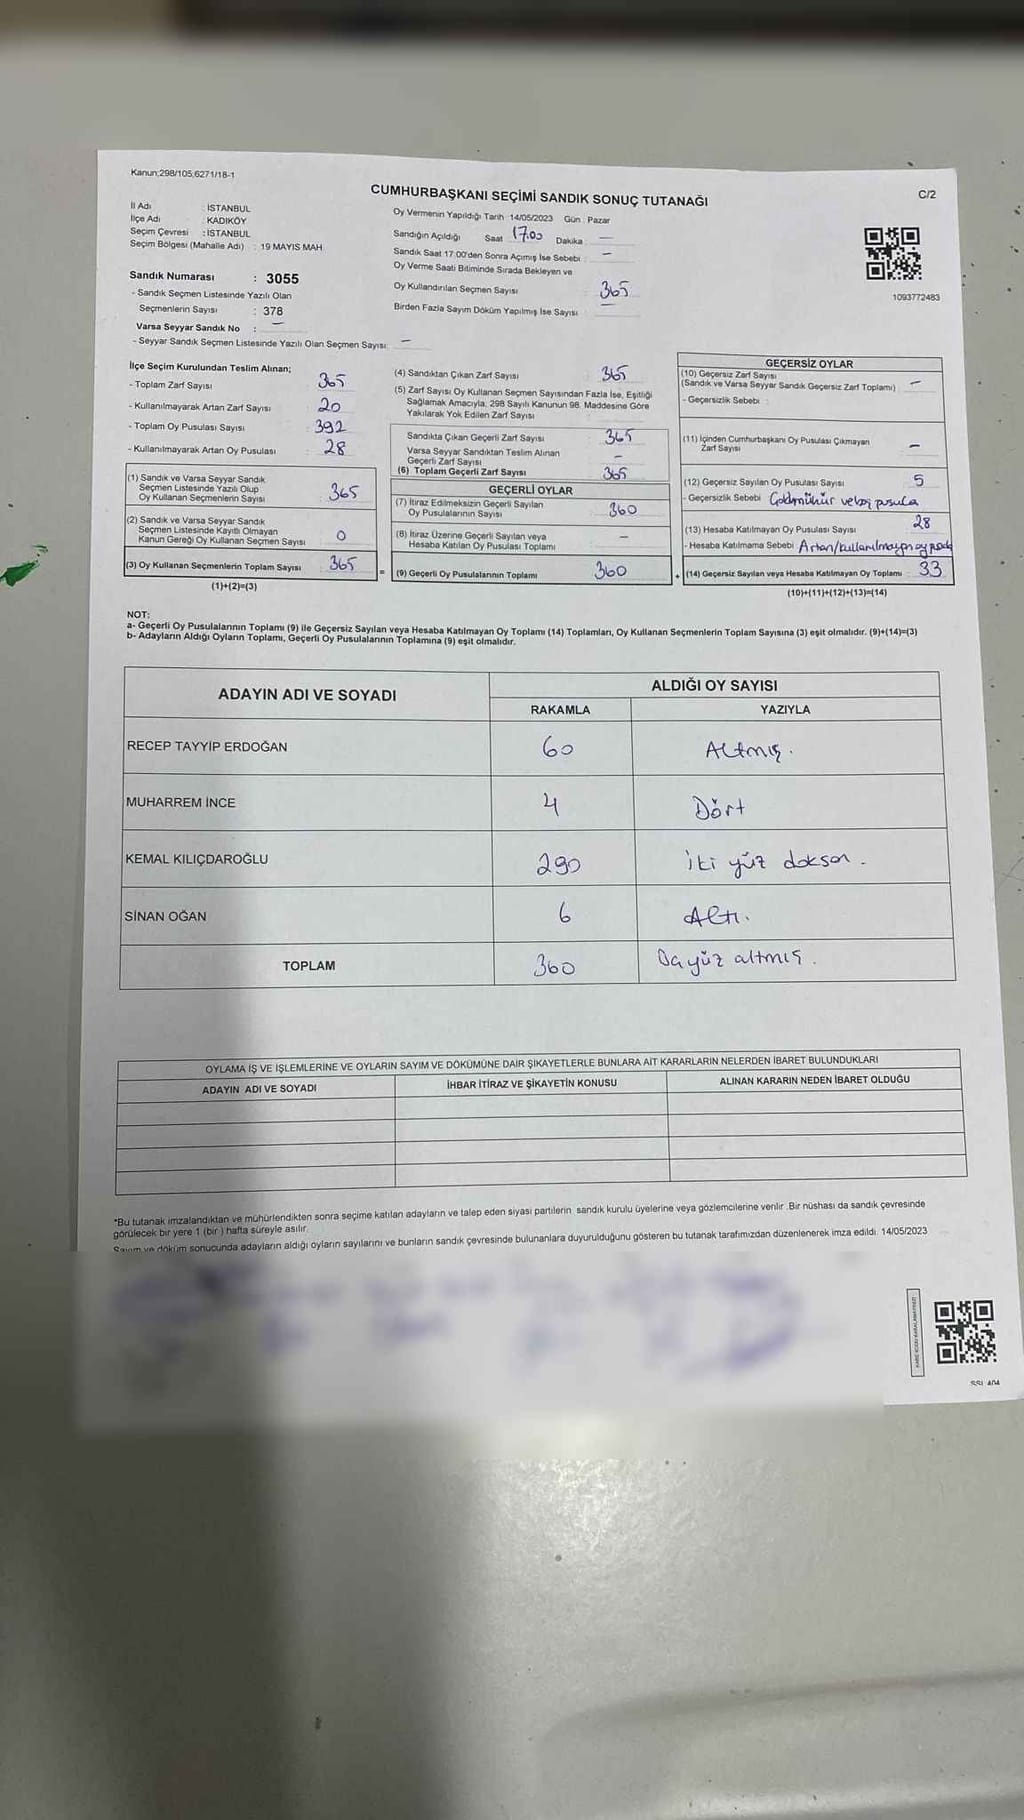 Kanun;298/105;6271/18-1
CUMHURBAŞKANI SEÇİMİ SANDIK SONUÇ TUTANAĞI
C/2
İl Adı : İSTANBUL
İlçe Adı : KADIKÖY
Seçim Çevresi : İSTANBUL
Seçim Bölgesi (Mahalle Adı) : 19 MAYIS MAH.
Sandık Numarası : 3055
- Sandık Seçmen Listesinde Yazılı Olan
Seçmenlerin Sayısı : 378
Varsa Seyyar Sandık No : —
- Seyyar Sandık Seçmen Listesinde Yazılı Olan Seçmen Sayısı: —
Oy Vermenin Yapıldığı Tarih : 14/05/2023 Gün : Pazar
Sandığın Açıldığı Saat 17.00 Dakika : —
Sandık Saat 17:00'den Sonra Açımış İse Sebebi : —
Oy Verme Saati Bitiminde Sırada Bekleyen ve
Oy Kullandırılan Seçmen Sayısı : 365
Birden Fazla Sayım Döküm Yapılmış İse Sayısı :
1093772483
İlçe Seçim Kurulundan Teslim Alınan;
- Toplam Zarf Sayısı : 365
- Kullanılmayarak Artan Zarf Sayısı : 20
- Toplam Oy Pusulası Sayısı : 392
- Kullanılmayarak Artan Oy Pusulası : 28
(1) Sandık ve Varsa Seyyar Sandık
Seçmen Listesinde Yazılı Olup
Oy Kullanan Seçmenlerin Sayısı : 365
(2) Sandık ve Varsa Seyyar Sandık
Seçmen Listesinde Kayıtlı Olmayan
Kanun Gereği Oy Kullanan Seçmen Sayısı : 0
(3) Oy Kullanan Seçmenlerin Toplam Sayısı : 365
(1)+(2)=(3)
(4) Sandıktan Çıkan Zarf Sayısı : 365
(5) Zarf Sayısı Oy Kullanan Seçmen Sayısından Fazla İse, Eşitliği
Sağlamak Amacıyla, 298 Sayılı Kanunun 98. Maddesine Göre
Yakılarak Yok Edilen Zarf Sayısı :
Sandıkta Çıkan Geçerli Zarf Sayısı : 365
Varsa Seyyar Sandıktan Teslim Alınan
Geçerli Zarf Sayısı : —
(6) Toplam Geçerli Zarf Sayısı : 365
GEÇERLİ OYLAR
(7) İtiraz Edilmeksizin Geçerli Sayılan
Oy Pusulalarının Sayısı : 360
(8) İtiraz Üzerine Geçerli Sayılan veya
Hesaba Katılan Oy Pusulası Toplamı : —
= (9) Geçerli Oy Pusulalarının Toplamı : 360
GEÇERSİZ OYLAR
(10) Geçersiz Zarf Sayısı
(Sandık ve Varsa Seyyar Sandık Geçersiz Zarf Toplamı) : —
- Geçersizlik Sebebi :
(11) İçinden Cumhurbaşkanı Oy Pusulası Çıkmayan
Zarf Sayısı : —
(12) Geçersiz Sayılan Oy Pusulası Sayısı : 5
- Geçersizlik Sebebi
(13) Hesaba Katılmayan Oy Pusulası Sayısı : 28
- Hesaba Katılmama Sebebi Artan/kullanılmayan
+ (14) Geçersiz Sayılan veya Hesaba Katılmayan Oy Toplamı : 33
(10)+(11)+(12)+(13)=(14)
NOT:
a- Geçerli Oy Pusulalarının Toplamı (9) ile Geçersiz Sayılan veya Hesaba Katılmayan Oy Toplamı (14) Toplamları, Oy Kullanan Seçmenlerin Toplam Sayısına (3) eşit olmalıdır. (9)+(14)=(3)
b- Adayların Aldığı Oyların Toplamı, Geçerli Oy Pusulalarının Toplamına (9) eşit olmalıdır.
ADAYIN ADI VE SOYADI
ALDIĞI OY SAYISI
RAKAMLA YAZIYLA
RECEP TAYYİP ERDOĞAN 60 Altmış.
MUHARREM İNCE 4 Dört
KEMAL KILIÇDAROĞLU 290 iki yüz doksan.
SİNAN OĞAN 6 Altı.
TOPLAM 360 yüz altmış.
OYLAMA İŞ VE İŞLEMLERİNE VE OYLARIN SAYIM VE DÖKÜMÜNE DAİR ŞİKAYETLERLE BUNLARA AİT KARARLARIN NELERDEN İBARET BULUNDUKLARI
ADAYIN ADI VE SOYADI İHBAR İTİRAZ VE ŞİKAYETİN KONUSU ALINAN KARARIN NEDEN İBARET OLDUĞU
*Bu tutanak imzalandıktan ve mühürlendikten sonra seçime katılan adayların ve talep eden siyasi partilerin sandık kurulu üyelerine veya gözlemcilerine verilir .Bir nüshası da sandık çevresinde
görülecek bir yere 1 (bir ) hafta süreyle asılır.
Sayım ve döküm sonucunda adayların aldığı oyların sayılarını ve bunların sandık çevresinde bulunanlara duyurulduğunu gösteren bu tutanak tarafımızdan düzenlenerek imza edildi. 14/05/2023